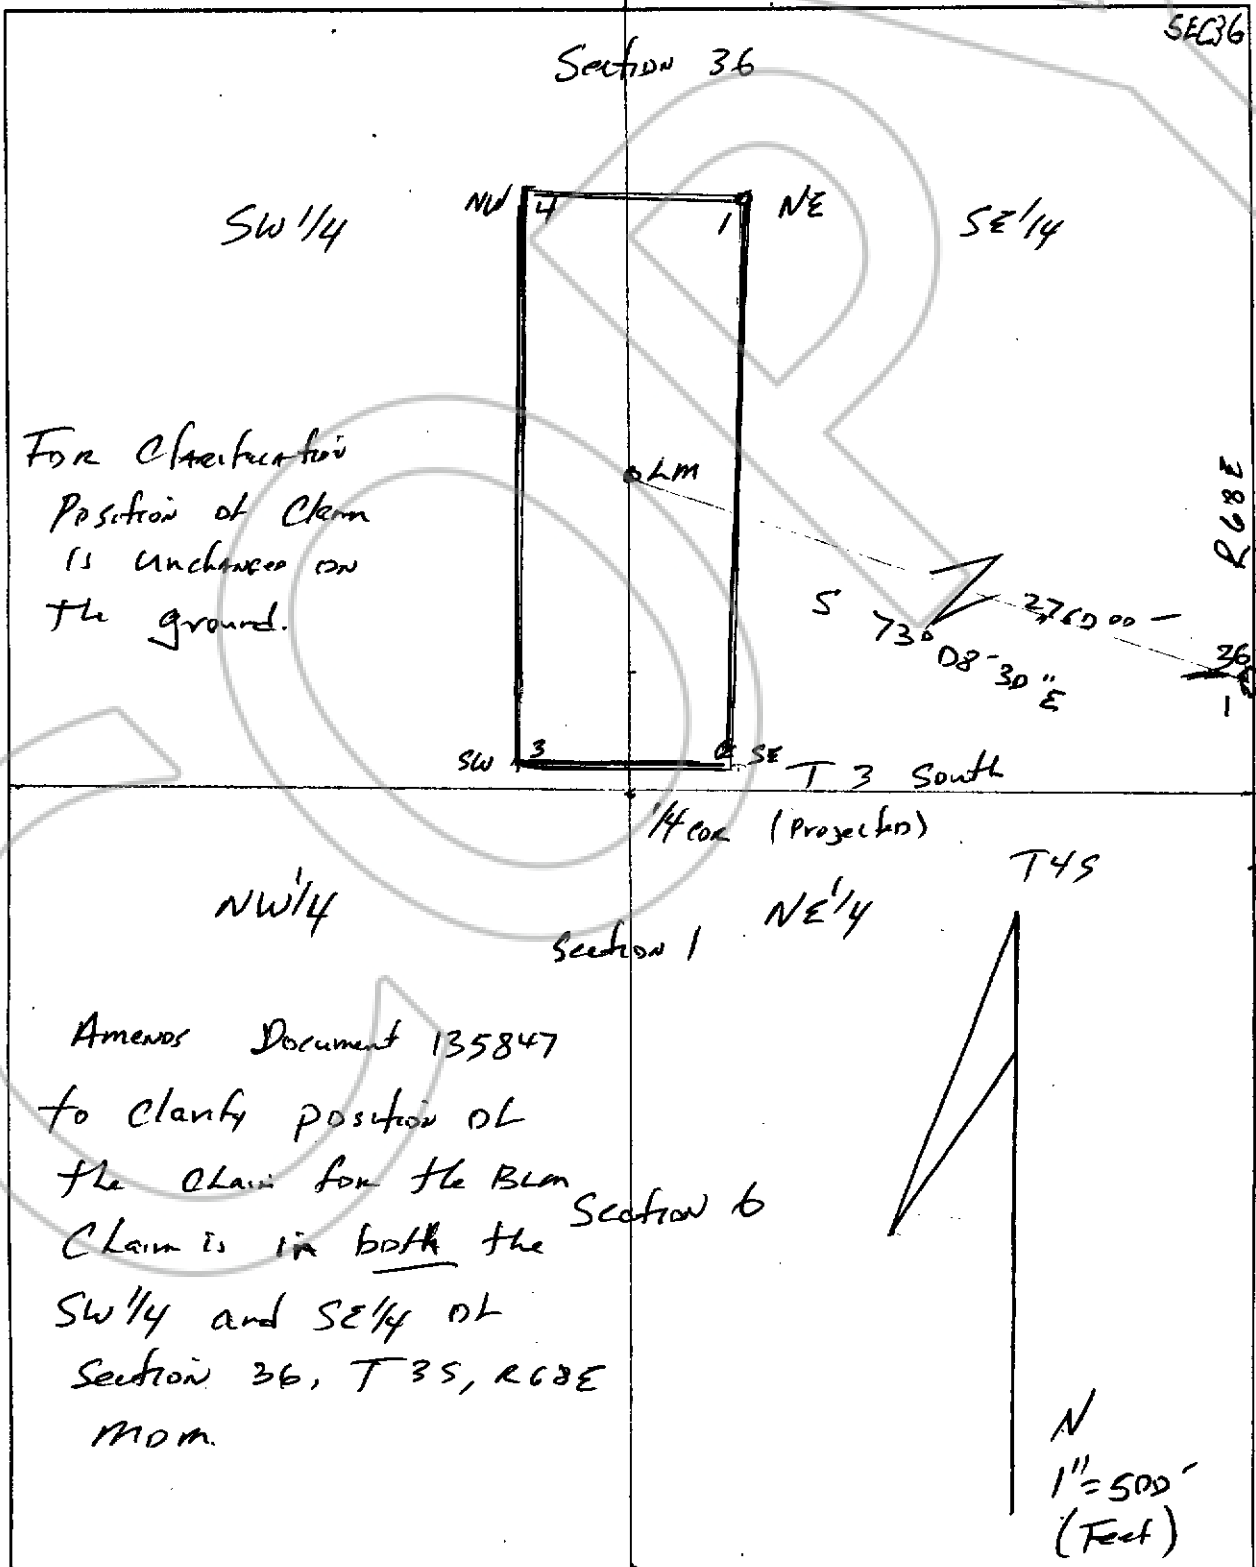 SEC36
Section 36
NW
4
1
NE
SW 1/4
SE 1/4
For Clarification
Position of Claim
is unchanged on
the ground.
LM
R68E
S 73° 08' 30" E
2760 00'
36
1
SW
3
2
SE
T 3 South
1/4 cor (Projected)
T4S
NW 1/4
NE 1/4
Section 1
Amends Document 135847
to Clarify position of
the Claim for the BLM
Claim is in both the
SW 1/4 and SE 1/4 of
Section 36, T3S, R68E
MDM.
Section 6
N
1" = 500'
(Feet)
COPY